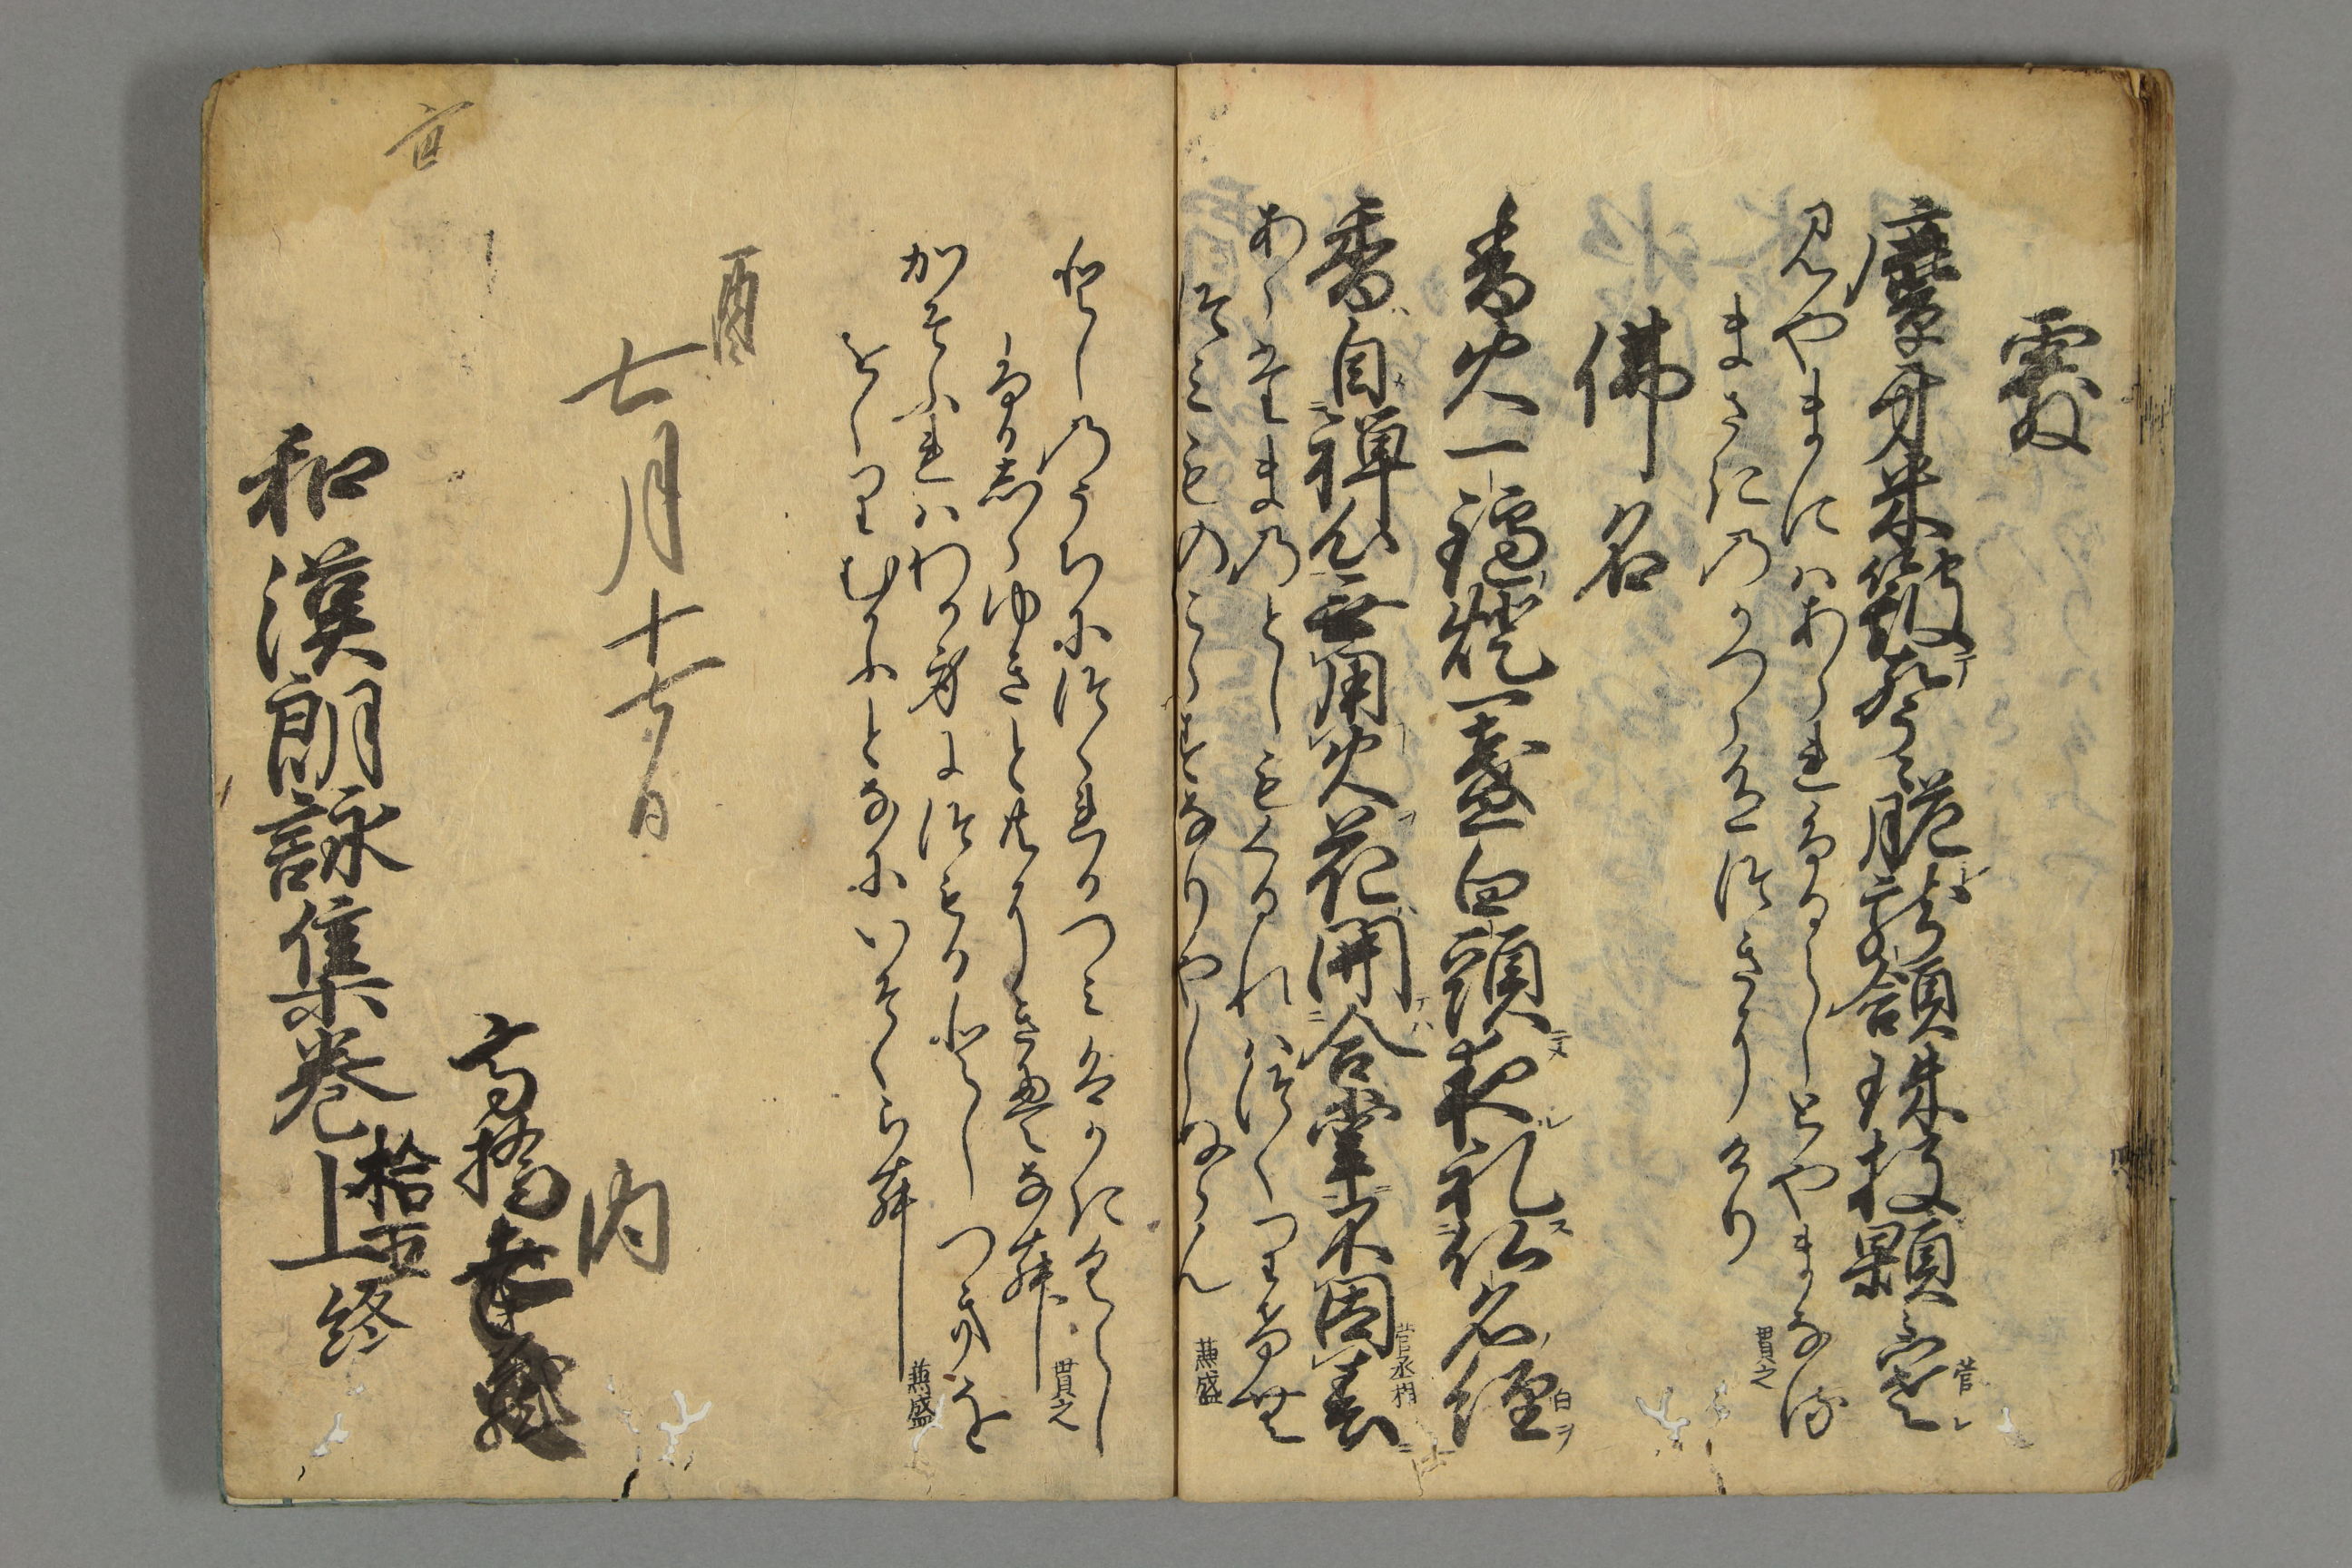 霰
麞牙米簸聲々脆龍頷珠投顆々寒 菅
みやまにはあられふるらしとやまなる
まさきのかつらいろつきにけり 貫之
佛名
香火一鑪燈一盞白頭夜礼仏名経 白
香自禅心無用火花開合掌不因春 菅丞相
あらたまのとしもくるれはつくりけむ
つみものこらすなりやしぬらん 兼盛
としのうちにつくれるつみはかきくらし
ふるしらゆきとともにきえなむ 貫之
かそふれはわか身につもるとしつきを
をくりむかふとなにいそくらむ 兼盛
酉
七月十七日
内
高橋
拾五
和漢朗詠集巻上終